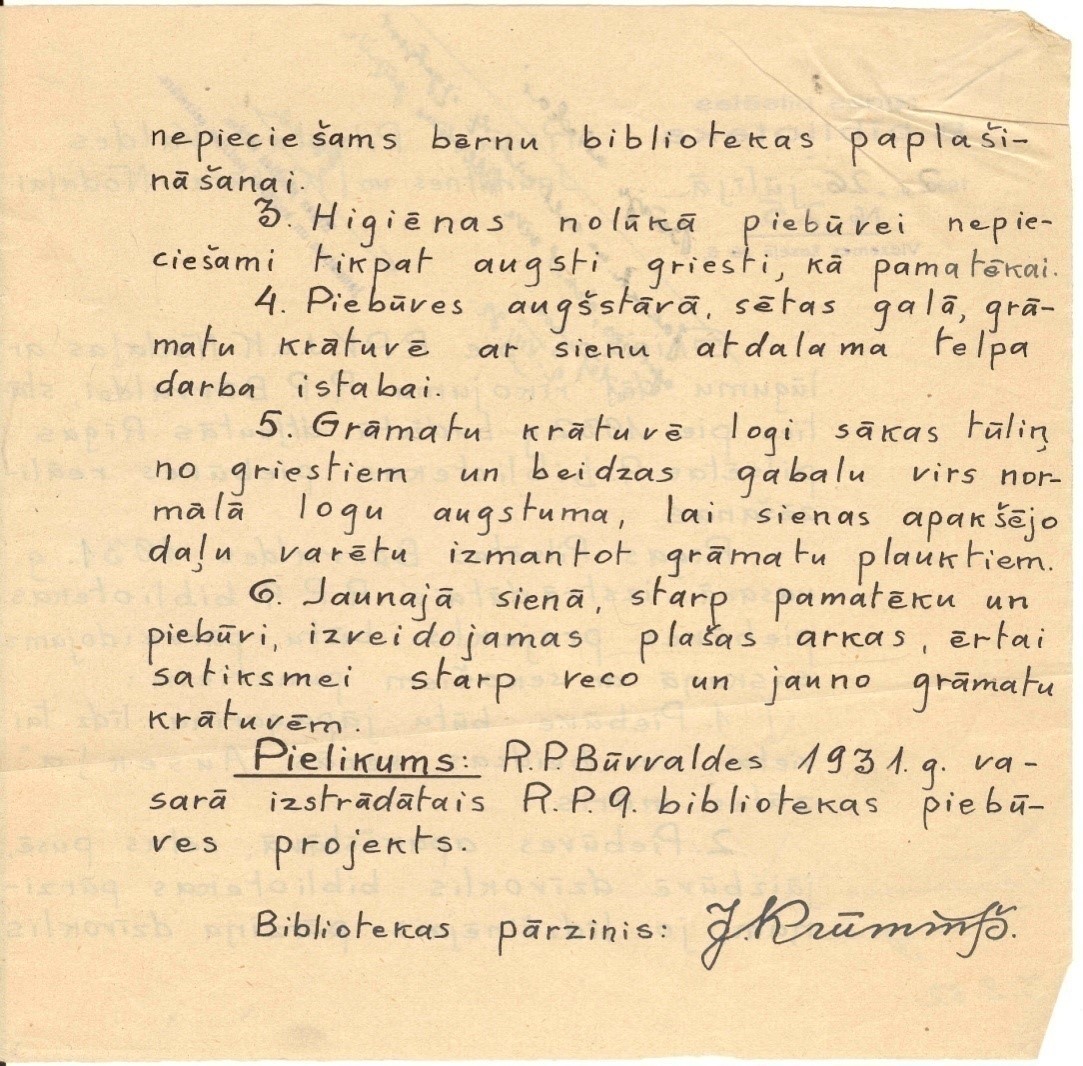 nepieciešams bērnu bibliotekas paplaši-
nāšanai.
3. Higiēnas nolūkā piebūvei nepie-
ciešami tikpat augsti griesti, kā pamatēkai.
4. Piebūves augšstāvā, sētas galā, grā-
matu krātuvē ar sienu atdalama telpa
darba istabai.
5. Grāmatu krātuvē logi sākas tūliņ
no griestiem un beidzas gabalu virs nor-
mālā logu augstuma, lai sienas apakšējo
daļu varētu izmantot grāmatu plauktiem.
6. Jaunajā sienā, starp pamatēku un
piebūvi, izveidojamas plašas arkas, ērtai
satiksmei starp veco un jauno grāmatu
krātuvēm.
Pielikums: R.P.Būvvaldes 1931. g. va-
sarā izstrādātais R.P.9. bibliotekas piebū-
ves projekts.
Bibliotekas pārzinis: J. Krūmiņš.